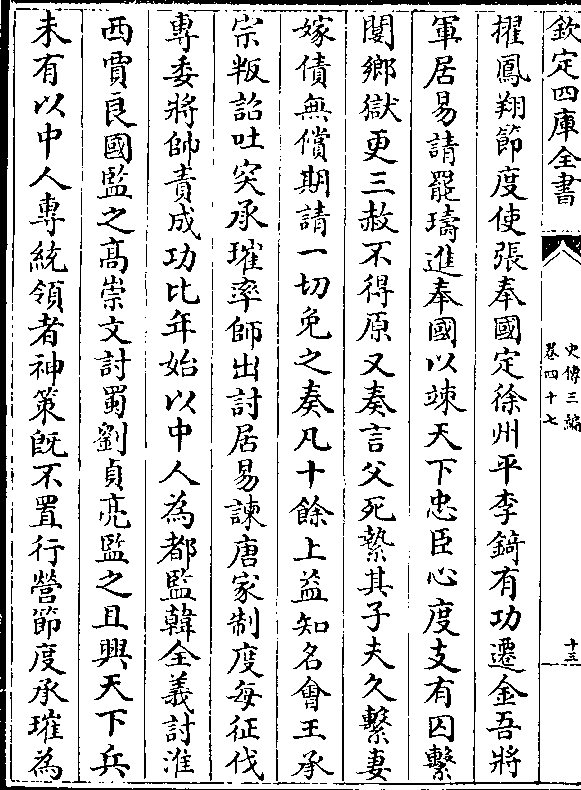 欽定四庫全書
史傳三編
卷四十七
十三
擢鳳翔節度使張奉國定徐州平李錡有功遷金吾將
軍居易請罷璹進奉國以竦天下忠臣心度支有囚繫
閿鄉獄更三赦不得原又奏言父死縶其子夫久繫妻
嫁債無償期請一切免之奏凡十餘上益知名會王承
宗叛詔吐突承璀率師出討居易諫唐家制度每征伐
專委將帥責成功比年始以中人為都監韓全義討淮
西賈良國監之髙崇文討蜀劉貞亮監之且興天下兵
未有以中人專統領者神策既不置行營節度承璀為